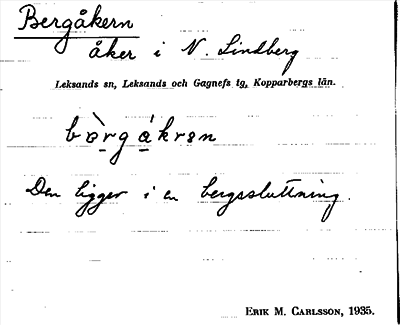 Bergåkern
åker i N. Lindberg
Leksands sn, Leksands och Gagnefs tg, Kopparbergs län.
bærgåkrən
Den ligger i en bergssluttning.
ERIK M. CARLSSON, 1935.